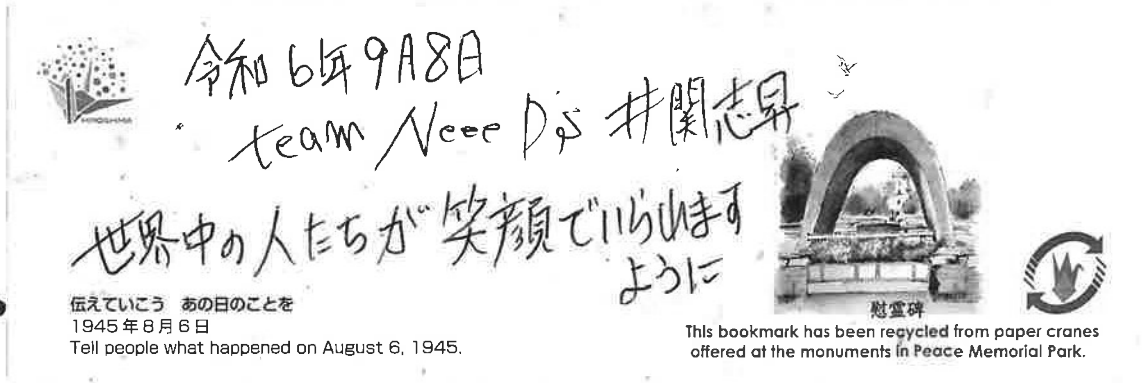 令和6年9月8日
HIROSHIMA
team Neee D's 井関志昇
世界中の人たちが笑顔でいられます
ように
伝えていこう あの日のことを
1945年8月6日
Tell people what happened on August 6, 1945.
慰霊碑
This bookmark has been recycled from paper cranes
offered at the monuments in Peace Memorial Park.